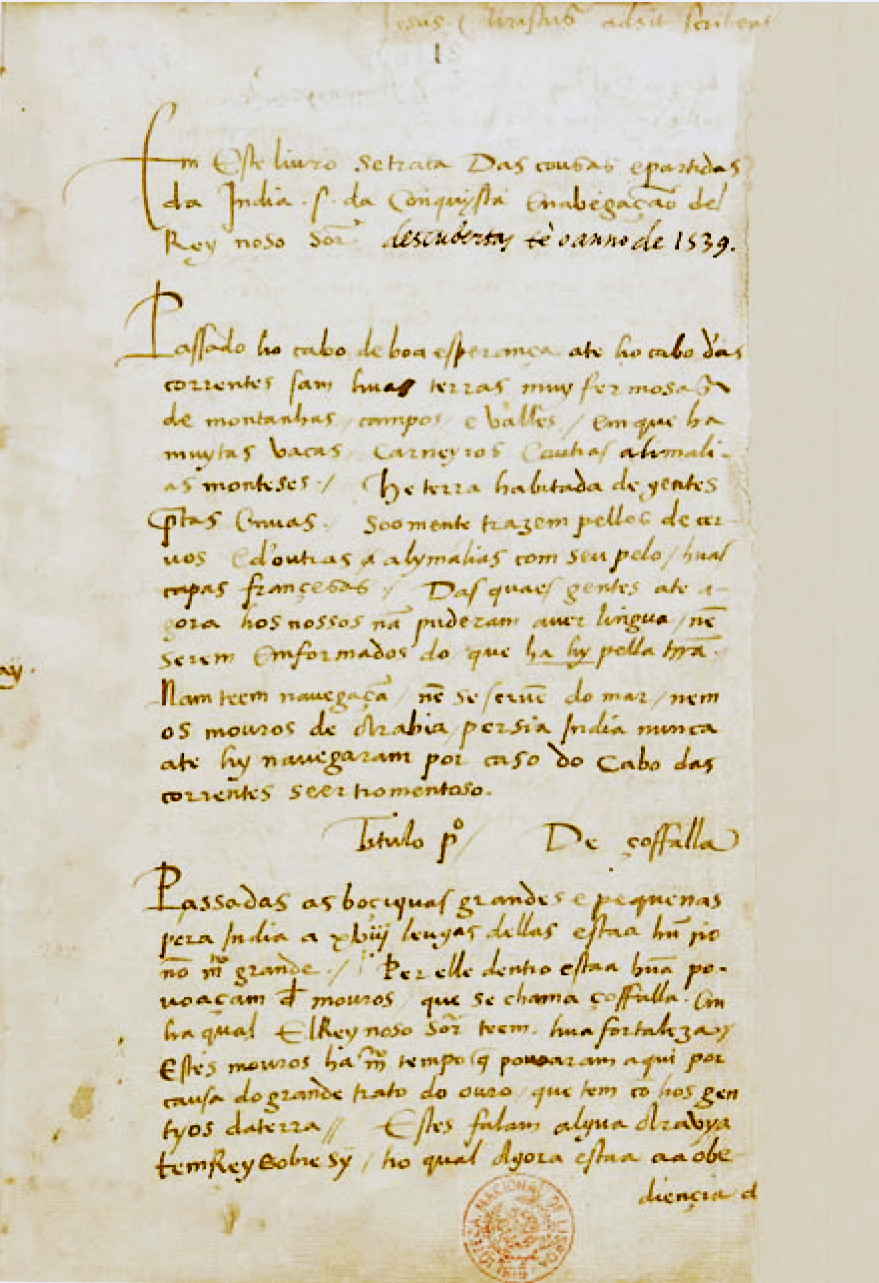 Jesus Christus adsit scribenti
1
Em Este livro se trata Das cousas e partidas
da India .s. da Conquysta Enabegação del
Rey noso Sor descubertas tè o anno de 1539.
Passado ho cabo de boa esperança ate ho cabo das
correntes sam huas terras muy fermosas
de montanhas / campos e valles / Em que ha
muytas vacas Carneyros Eoutras alimali-
as monteses / He terra habitada de gentes
p̃tas Enuas. Soomente trazem pelles de cer-
vos E d'outras alymalias com seu pelo / huas
capas françesas / Das quaes gentes ate a-
gora hos nossos nã puderam aver lingua / nẽ
serem Emformados do que ha hy pella trrã.
Nam teem navegaçã / nẽ se servẽ do mar / nem
os mouros de Arabia / persia India nunca
ate hy navegaram por caso do Cabo das
correntes seer tromentoso.
Titulo pº / De çoffalla
Passadas as boçiquas grandes e pequenas
pera India a xbiij leugas dellas estaa hũ rio
nõ mto grande. / Per elle dentro estaa huã po-
voaçam đ mouros / que se chama çoffalla. Em
ha qual ElRey noso Sor teem hua fortaleza //
Estes mouros ha mto tempo q̃ povoaram aqui por
causa do grande trato do ouro / que tem cõ hos gen
tyos da terra // Estes falam algua Aravya
tem Rey sobre sy / ho qual Agora estaa aa obe-
diençia d
BIBLIOTECA NACIONAL DE LISBOA